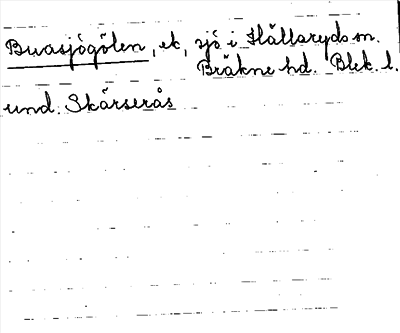 Buasjögölen, ek, sjö i Hällaryds sn.
Bräkne hd. Blek. l.
und. Skärserås